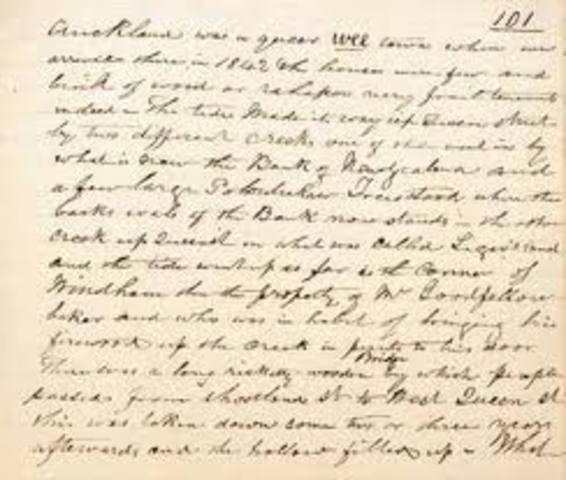 101
Auckland was a queer wee town when we
arrived there in 1842 the houses were few and
built of wood or raupo very few
indeed - The tide made its way up Queen Street
by two different creeks one of the by
what is now the Bank of New Zealand and
a few large Pohutukaw Trees stood where the
backs of the Bank now stands in the other
creek up Queen St in what was called
and the tide went up as far as the corner of
Windham the property of Mr Goodfellow
baker and who was in habit of bringing his
firewood up the creek in to his door.
Bridge
There was a long ricketty wooden by which people
passed from Shortland St to West Queen St
this was taken down some two or three years
afterwards and the hollow filled up - What